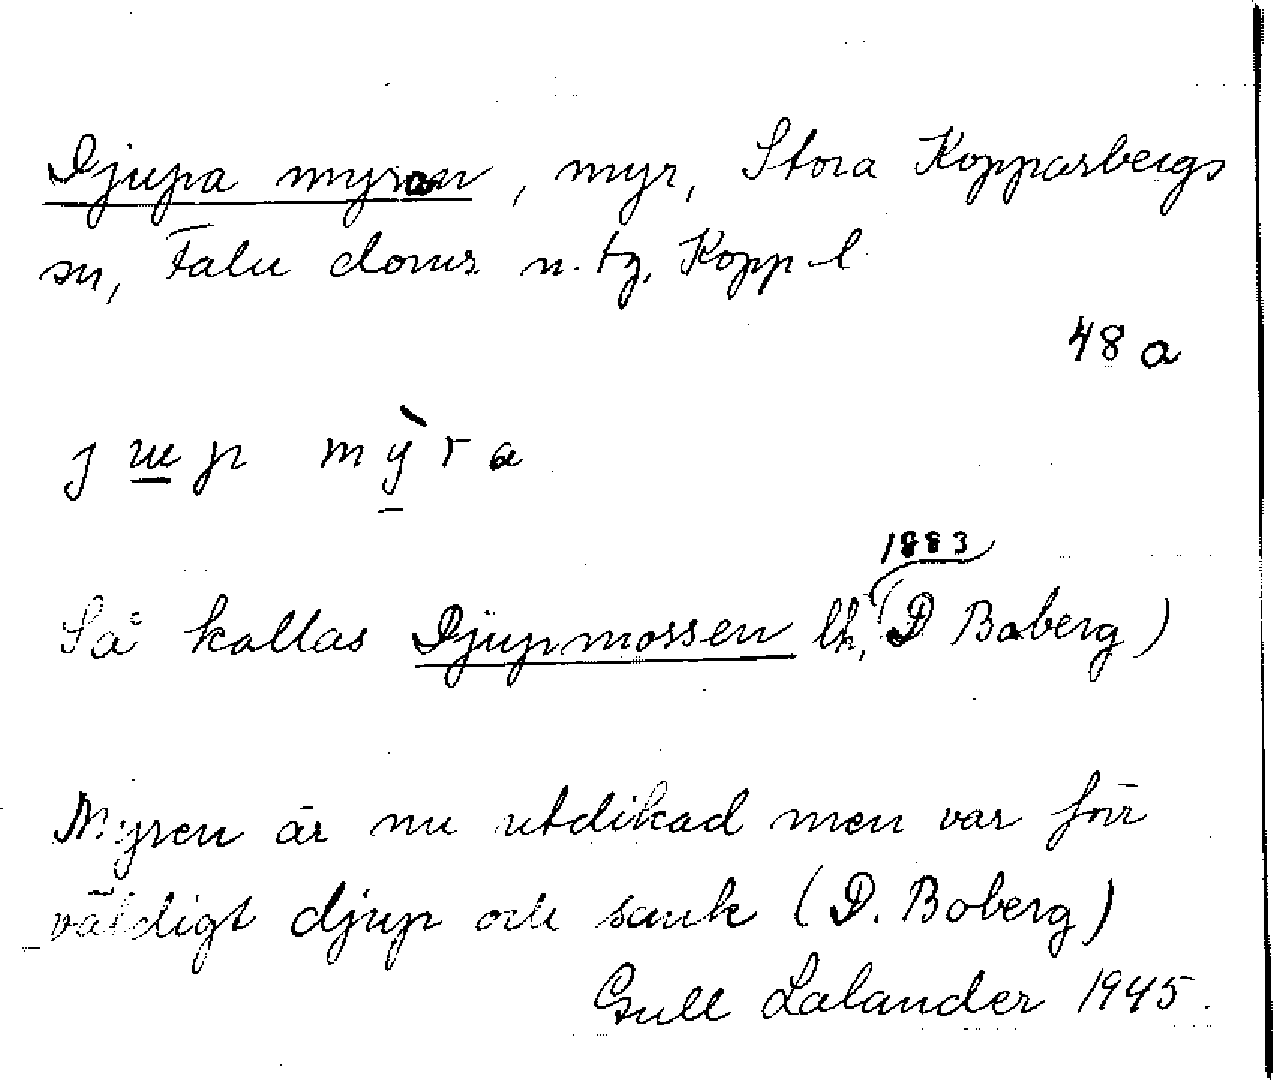 Djupa myran, myr, Stora Kopparbergs
sn, Falu doms n. tg, Kopp l.
48 a
j u p m ỳ r a
1883
Så kallas Djupmossen lk, (D Boberg)
Myren är nu utdikad men var förr
väldigt djup och sank (D. Boberg)
Gull Lalander 1945.